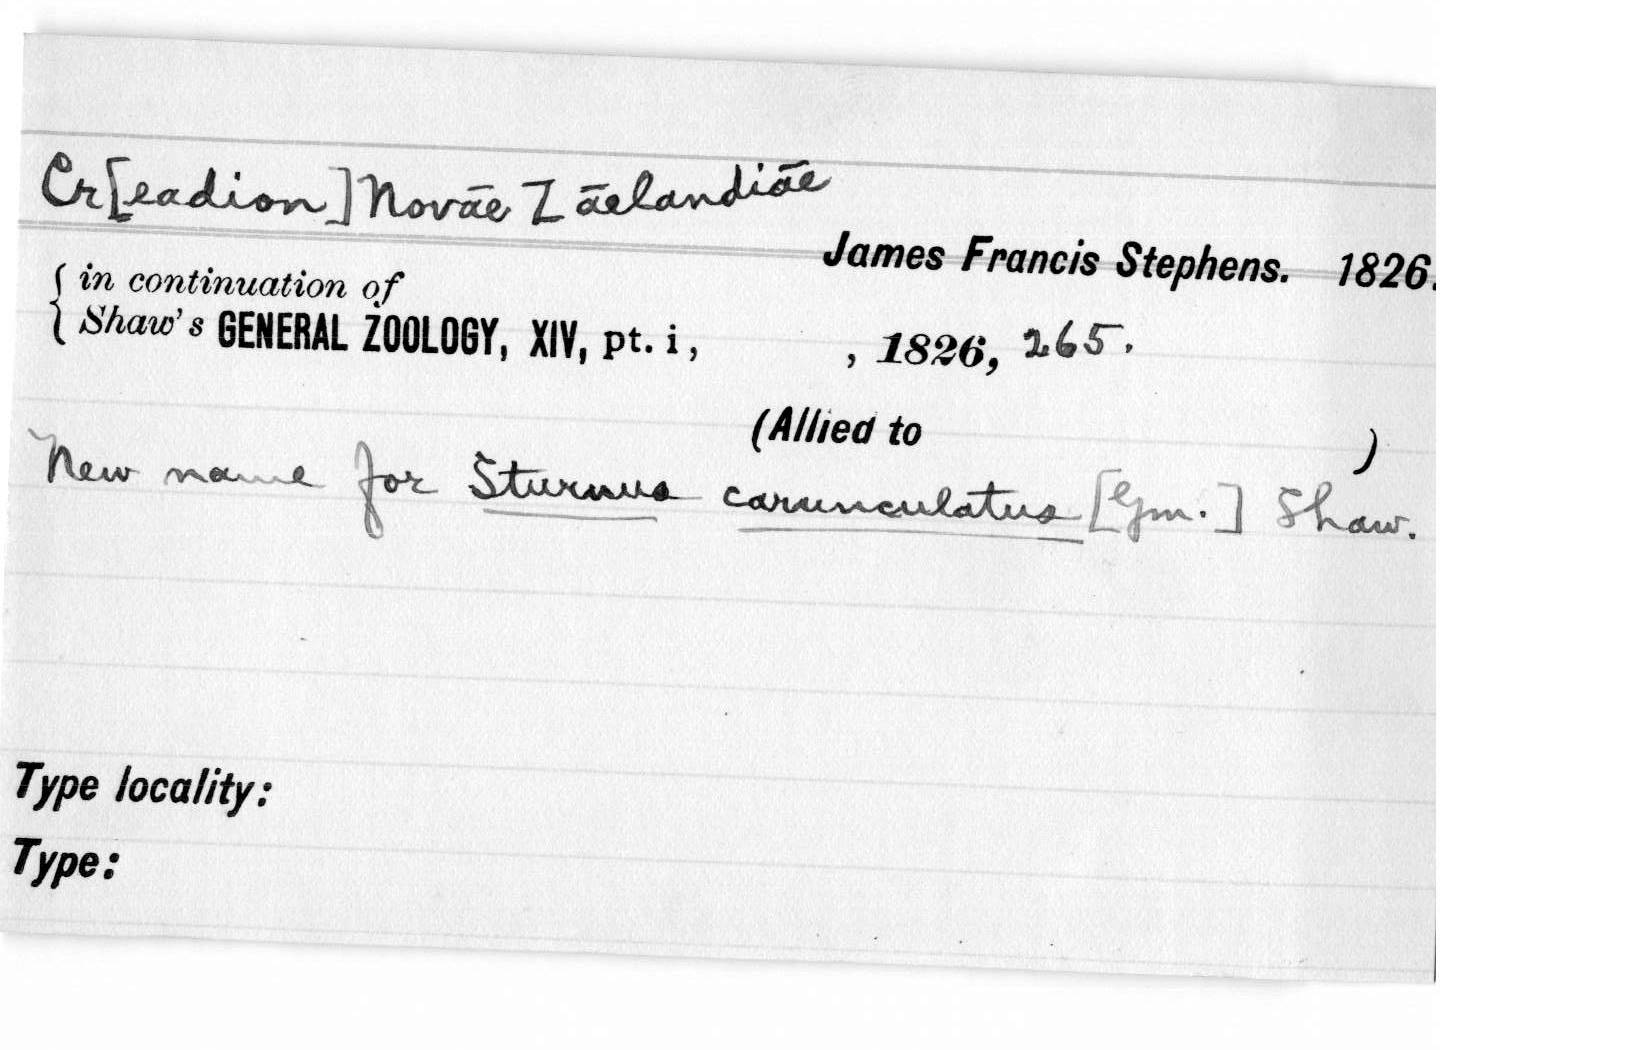 Cr[eadion] Novāe Zāelandiāe
James Francis Stephens. 1826.
{ in continuation of
Shaw's GENERAL ZOOLOGY, XIV, pt. i, , 1826, 265.
(Allied to )
New name for Sturnus carunculatus [Gm.] Shaw.
Type locality:
Type: